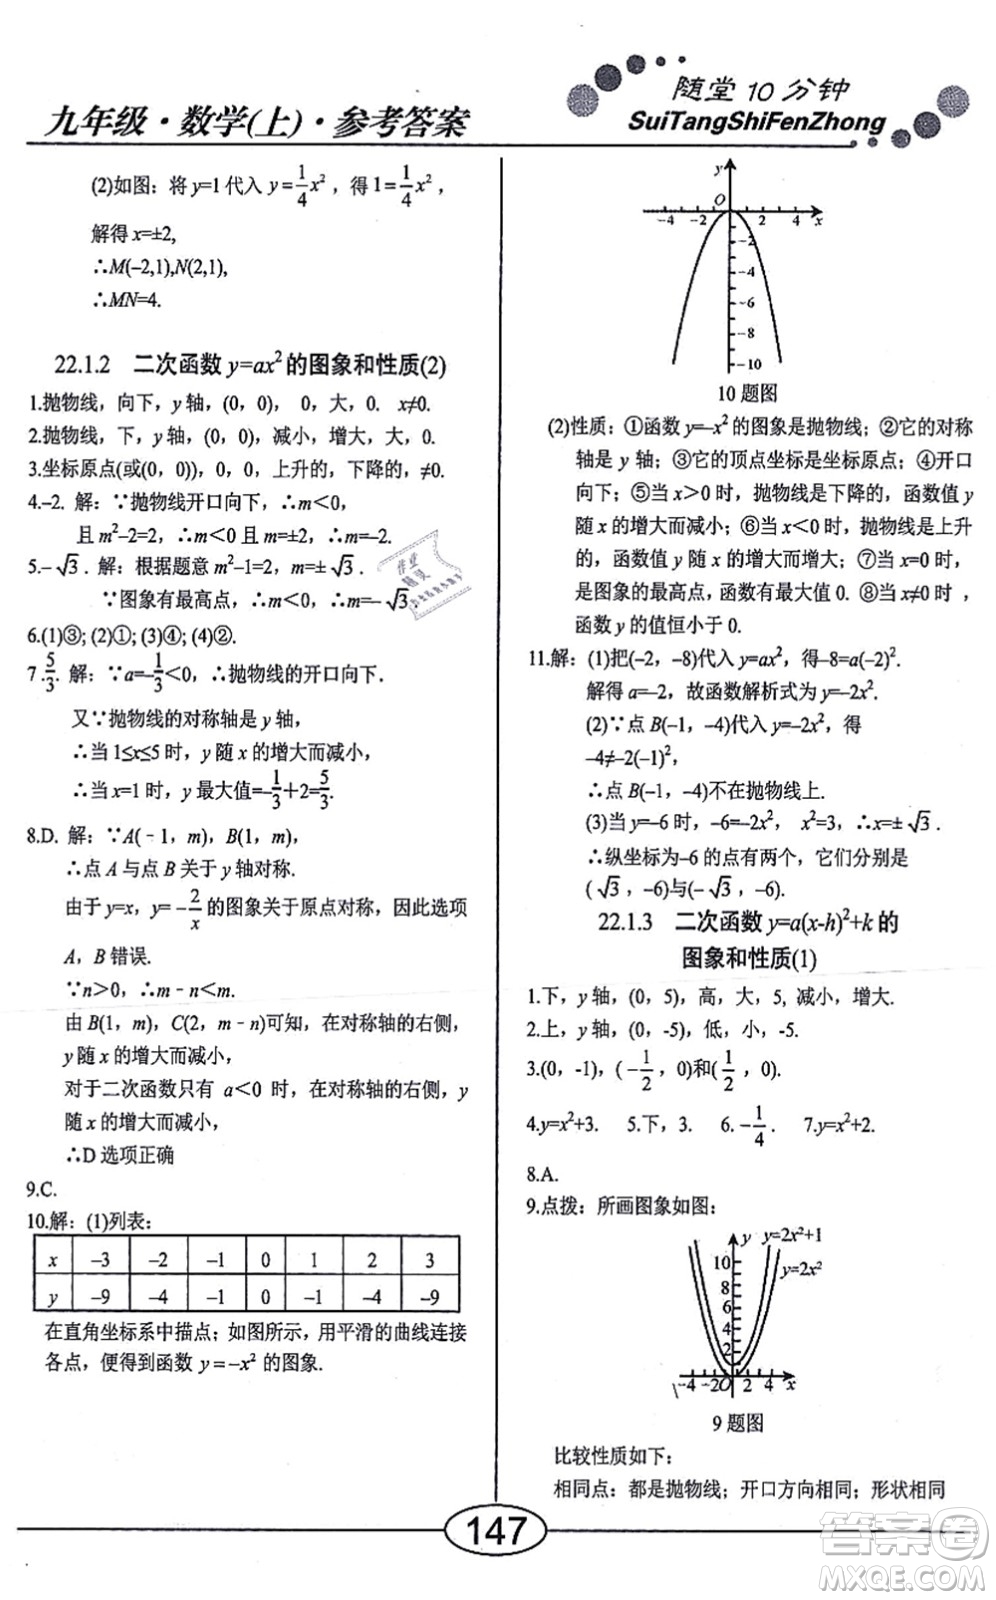 九年级·数学(上)·参考答案
随堂10分钟
SuiTangShiFenZhong
(2)如图：将 y=1 代入 y=1/4x²，得 1=1/4x²，
解得 x=±2,
∴M(–2,1),N(2,1),
∴MN=4.
22.1.2 二次函数 y=ax² 的图象和性质(2)
1.抛物线，向下，y 轴，(0，0)， 0，大，0. x≠0.
2.抛物线，下，y 轴，(0，0)，减小，增大，大，0.
3.坐标原点(或(0，0))，0，上升的，下降的，≠0.
4.–2. 解：∵抛物线开口向下，∴m＜0，
且 m²–2=2，∴m＜0 且 m=±2，∴m=–2.
5.–√3. 解：根据题意 m²–1=2，m=±√3.
∵图象有最高点，∴m＜0，∴m=–√3.
6.(1)③; (2)①; (3)④; (4)②.
7.5/3. 解：∵a=–1/3＜0，∴抛物线的开口向下.
又∵抛物线的对称轴是 y 轴，
∴当 1≤x≤5 时，y 随 x 的增大而减小，
∴当 x=1 时，y 最大值=–1/3+2=5/3.
8.D. 解：∵A(﹣1，m)，B(1，m)，
∴点 A 与点 B 关于 y 轴对称.
由于 y=x，y=–2/x 的图象关于原点对称，因此选项
A，B 错误.
∵n＞0，∴m﹣n＜m.
由 B(1，m)，C(2，m﹣n)可知，在对称轴的右侧，
y 随 x 的增大而减小，
对于二次函数只有 a＜0 时，在对称轴的右侧，y
随 x 的增大而减小，
∴D 选项正确
9.C.
10.解：(1)列表：
x –3 –2 –1 0 1 2 3
y –9 –4 –1 0 –1 –4 –9
在直角坐标系中描点；如图所示，用平滑的曲线连接
各点，便得到函数 y=–x² 的图象.
y
O
–4 –2 2 4 x
–2
–4
–6
–8
–10
10 题图
(2)性质：①函数 y=–x² 的图象是抛物线；②它的对称
轴是 y 轴；③它的顶点坐标是坐标原点；④开口
向下；⑤当 x＞0 时，抛物线是下降的，函数值 y
随 x 的增大而减小；⑥当 x＜0 时，抛物线是上升
的，函数值 y 随 x 的增大而增大；⑦当 x=0 时，
是图象的最高点，函数值最大为 0. ⑧当 x≠0 时，
函数 y 的值恒小于 0.
11.解：(1)把(–2，–8)代入 y=ax²，得–8=a(–2)².
解得 a=–2，故函数解析式为 y=–2x².
(2)∵点 B(–1，–4)代入 y=–2x²，得
–4≠–2(–1)²，
∴点 B(–1，–4)不在抛物线上.
(3)当 y=–6 时，–6=–2x²， x²=3，∴x=±√3.
∴纵坐标为–6 的点有两个，它们分别是
(√3，–6)与(–√3，–6).
22.1.3 二次函数 y=a(x-h)²+k 的
图象和性质(1)
1.下，y 轴，(0，5)，高，大，5, 减小，增大.
2.上，y 轴，(0，-5)，低，小，-5.
3.(0，-1)，(–1/2，0)和(1/2，0).
4.y=x²+3. 5.下，3. 6.–1/4. 7.y=x²+2.
8.A.
9.点拨：所画图象如图：
y y=2x²+1
y=2x²
10
8
6
4
2
–4 –2 O 2 4 x
9 题图
比较性质如下：
相同点：都是抛物线；开口方向相同；形状相同
147
答案圈
MXQE.COM